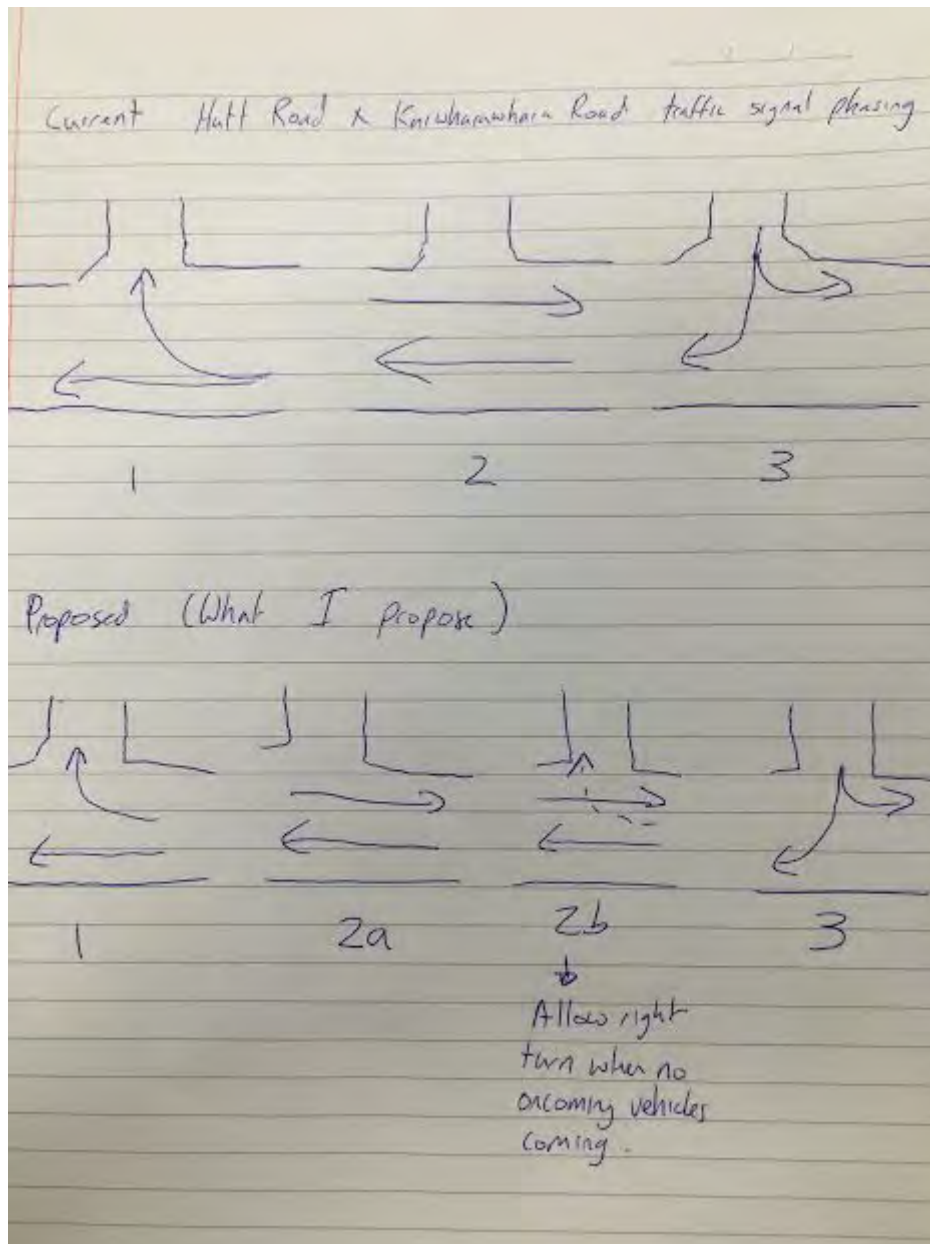 Current Hutt Road & Kaiwharawhara Road traffic signal phasing
1 2 3
Proposed (What I propose)
1 2a 2b 3
Allow right
turn when no
oncoming vehicles
coming.